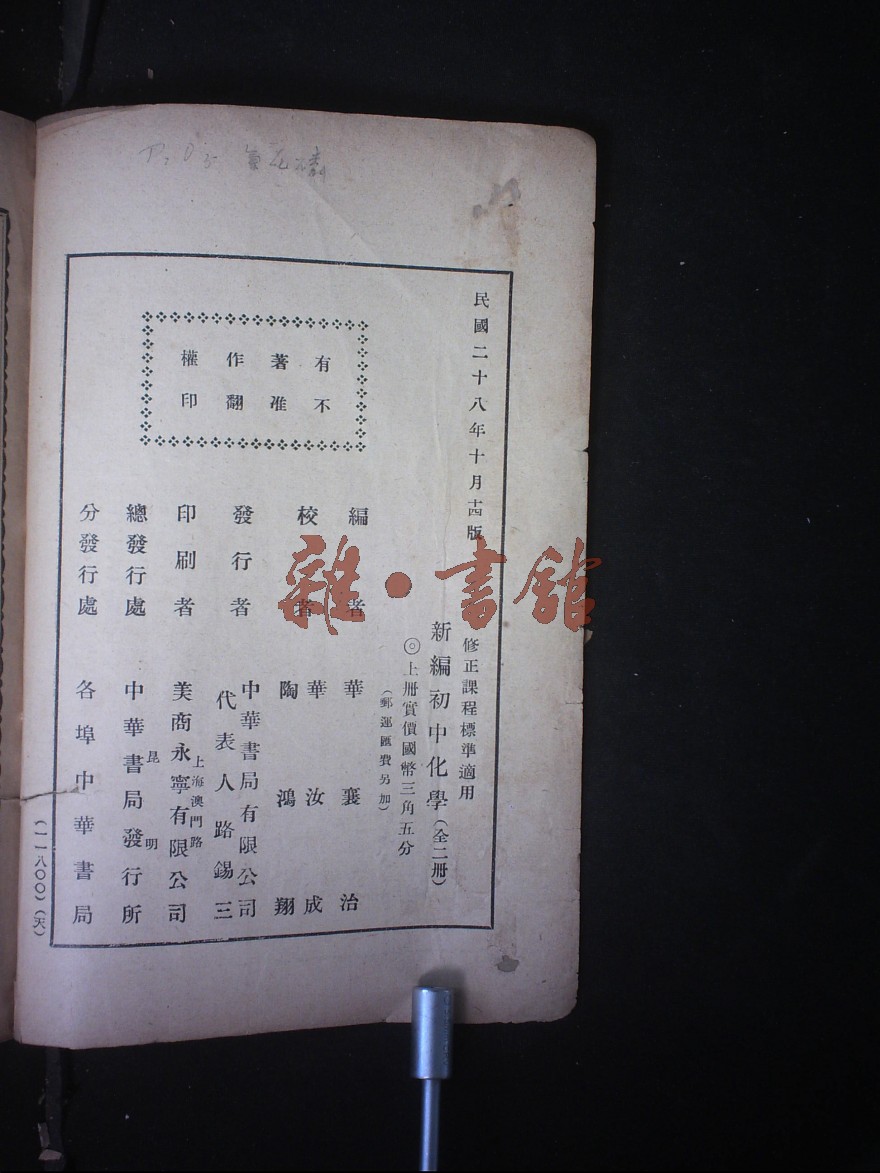 P₂O₅
民國二十八年十月十四版
修正課程標準適用
新編初中化學(全二册)
◎上册實價國幣三角五分
(郵運匯費另加)
有著作權
不准翻印
編者 華襄治
校者 華汝成
陶鴻翔
發行者 中華書局有限公司
代表人路錫三
印刷者 上海澳門路
美商永寧有限公司
總發行處 昆明
中華書局發行所
分發行處 各埠中華書局
(一一八〇〇)(天)
雜·書館